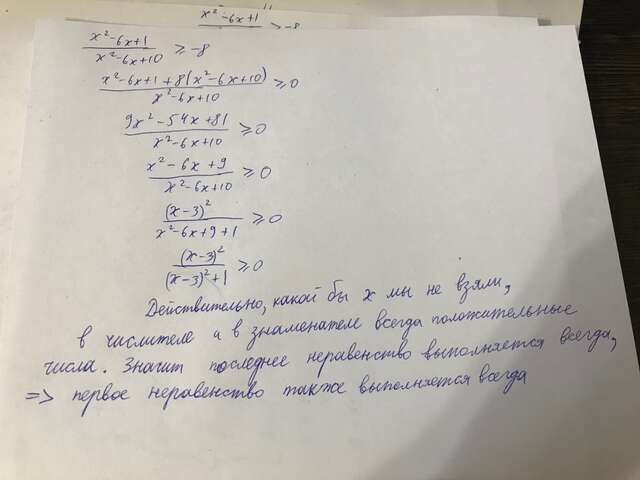 x²-6x+1 ≥ -8
x²-6x+1 / x²-6x+10 ≥ -8
x²-6x+1+8(x²-6x+10) / x²-6x+10 ≥ 0
9x²-54x+81 / x²-6x+10 ≥ 0
x²-6x+9 / x²-6x+10 ≥ 0
(x-3)² / x²-6x+9+1 ≥ 0
(x-3)² / (x-3)²+1 ≥ 0
Действительно, какой бы x мы не взяли,
в числителе и в знаменателе всегда положительные
числа. Значит последнее неравенство выполняется всегда,
=> первое неравенство также выполняется всегда